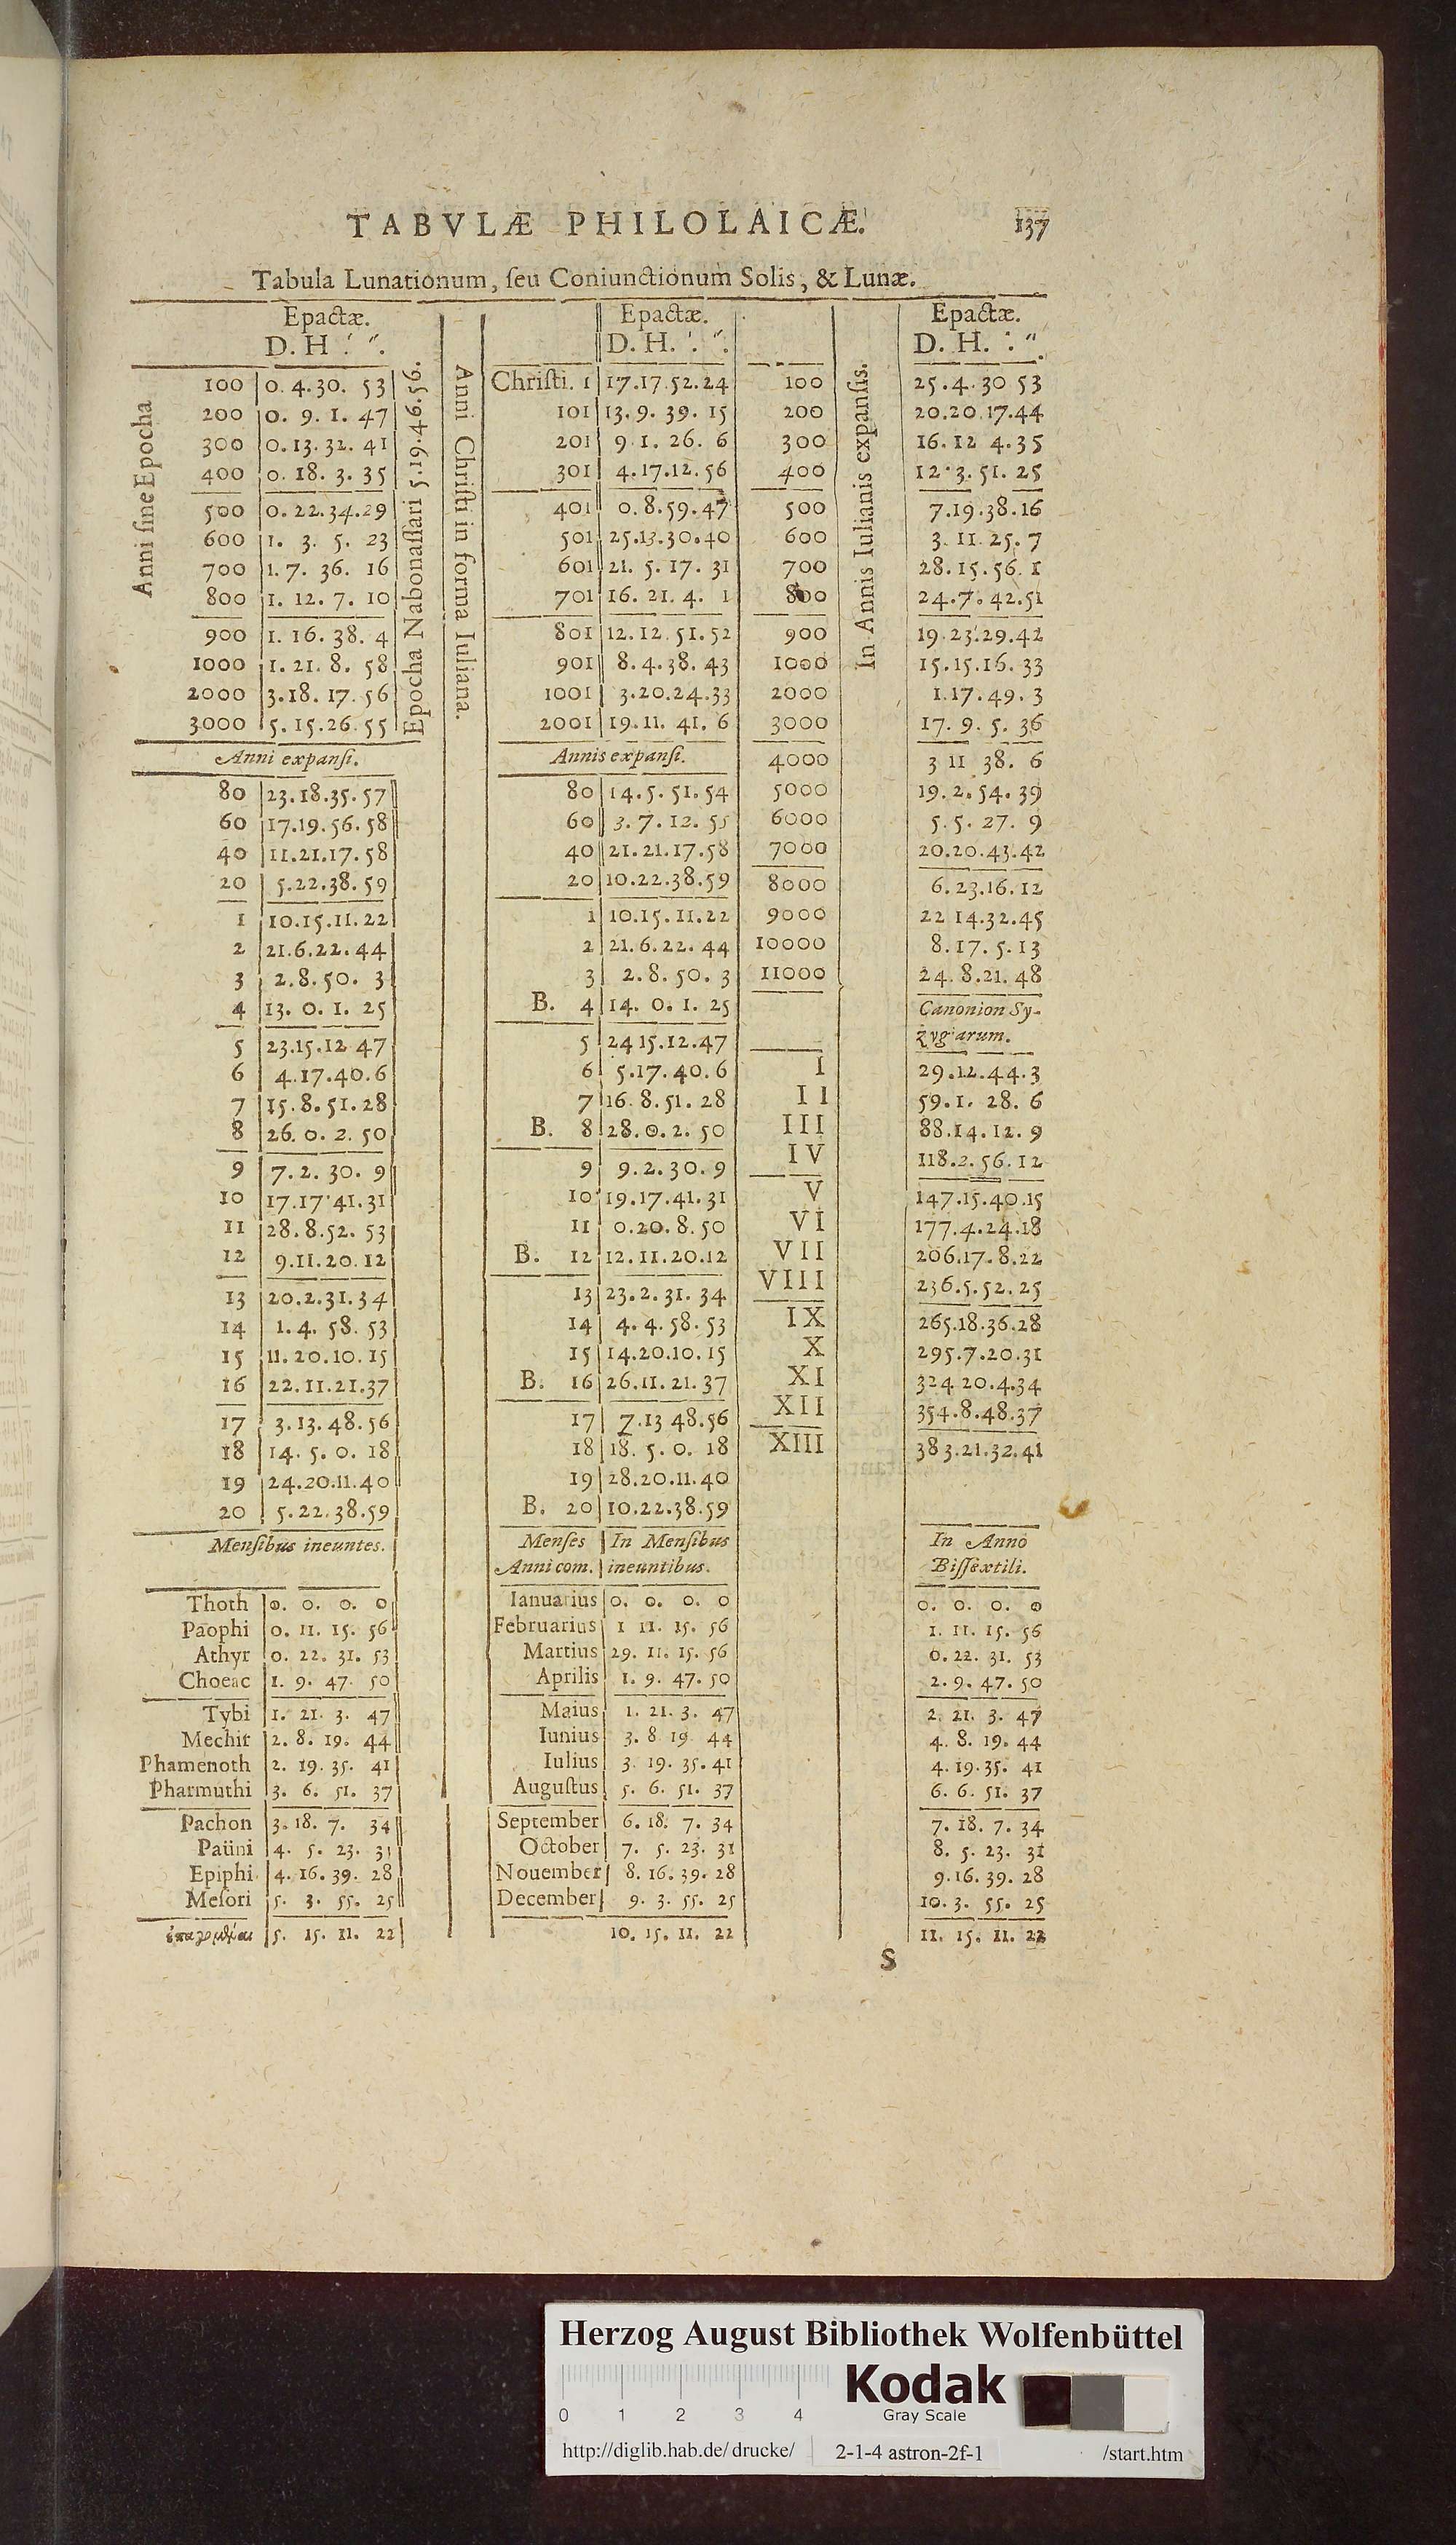 TABVLÆ PHILOLAICÆ. 137
Tabula Lunationum, ſeu Coniunctionum Solis, & Lunæ.
Anni ſine Epocha
Epactæ.
D. H ′. ″.
100 0. 4. 30. 53
200 0. 9. 1. 47
300 0. 13. 32. 41
400 0. 18. 3. 35
500 0. 22. 34. 29
600 1. 3. 5. 23
700 1. 7. 36. 16
800 1. 12. 7. 10
900 1. 16. 38. 4
1000 1. 21. 8. 58
2000 3. 18. 17. 56
3000 5. 15. 26. 55
Epocha Nabonaſſari 5. 19. 46. 56.
Anni expanſi.
80 23. 18. 35. 57
60 17. 19. 56. 58
40 11. 21. 17. 58
20 5. 22. 38. 59
1 10. 15. 11. 22
2 21. 6. 22. 44
3 2. 8. 50. 3
4 13. 0. 1. 25
5 23. 15. 12 47
6 4. 17. 40. 6
7 15. 8. 51. 28
8 26. 0. 2. 50
9 7. 2. 30. 9
10 17. 17. 41. 31
11 28. 8. 52. 53
12 9. 11. 20. 12
13 20. 2. 31. 34
14 1. 4. 58. 53
15 11. 20. 10. 15
16 22. 11. 21. 37
17 3. 13. 48. 56
18 14. 5. 0. 18
19 24. 20. 11. 40
20 5. 22. 38. 59
Menſibus ineuntes.
Thoth 0. 0. 0. 0
Paophi 0. 11. 15. 56
Athyr 0. 22. 31. 53
Choeac 1. 9. 47. 50
Tybi 1. 21. 3. 47
Mechir 2. 8. 19. 44
Phamenoth 2. 19. 35. 41
Pharmuthi 3. 6. 51. 37
Pachon 3. 18. 7. 34
Paüni 4. 5. 23. 31
Epiphi 4. 16. 39. 28
Meſori 5. 3. 55. 25
5. 15. 11. 22
Anni Chriſti in forma Iuliana.
Epactæ.
D. H. ′. ″.
Chriſti. 1 17. 17. 52. 24
101 13. 9. 39. 15
201 9. 1. 26. 6
301 4. 17. 12. 56
401 0. 8. 59. 47
501 25. 13. 30. 40
601 21. 5. 17. 31
701 16. 21. 4. 1
801 12. 12. 51. 52
901 8. 4. 38. 43
1001 3. 20. 24. 33
2001 19. 11. 41. 6
Annis expanſi.
80 14. 5. 51. 54
60 3. 7. 12. 55
40 21. 21. 17. 58
20 10. 22. 38. 59
1 10. 15. 11. 22
2 21. 6. 22. 44
3 2. 8. 50. 3
B. 4 14. 0. 1. 25
5 24 15. 12. 47
6 5. 17. 40. 6
7 16. 8. 51. 28
B. 8 28. 0. 2. 50
9 9. 2. 30. 9
10 19. 17. 41. 31
11 0. 20. 8. 50
B. 12 12. 11. 20. 12
13 23. 2. 31. 34
14 4. 4. 58. 53
15 14. 20. 10. 15
B. 16 26. 11. 21. 37
17 7. 13 48. 56
18 18. 5. 0. 18
19 28. 20. 11. 40
B. 20 10. 22. 38. 59
Menſes In Menſibus
Anni com. ineuntibus.
Ianuarius 0. 0. 0. 0
Februarius 1 11. 15. 56
Martius 29. 11. 15. 56
Aprilis 1. 9. 47. 50
Maius 1. 21. 3. 47
Iunius 3. 8. 19. 44
Iulius 3. 19. 35. 41
Auguſtus 5. 6. 51. 37
September 6. 18. 7. 34
October 7. 5. 23. 31
Nouember 8. 16. 39. 28
December 9. 3. 55. 25
10. 15. 11. 22
In Annis Iulianis expanſis.
Epactæ.
D. H. ′. ″.
100 25. 4. 30 53
200 20. 20. 17. 44
300 16. 12 4. 35
400 12. 3. 51. 25
500 7. 19. 38. 16
600 3. 11. 25. 7
700 28. 15. 56. 1
800 24. 7. 42. 51
900 19. 23. 29. 42
1000 15. 15. 16. 33
2000 1. 17. 49. 3
3000 17. 9. 5. 36
4000 3 11 38. 6
5000 19. 2. 54. 39
6000 5. 5. 27. 9
7000 20. 20. 43. 42
8000 6. 23. 16. 12
9000 22 14. 32. 45
10000 8. 17. 5. 13
11000 24. 8. 21. 48
Canonion Sy-
zygiarum.
I 29. 12. 44. 3
II 59. 1. 28. 6
III 88. 14. 12. 9
IV 118. 2. 56. 12
V 147. 15. 40. 15
VI 177. 4. 24. 18
VII 206. 17. 8. 22
VIII 236. 5. 52. 25
IX 265. 18. 36. 28
X 295. 7. 20. 31
XI 324 20. 4. 34
XII 354. 8. 48. 37
XIII 383. 21. 32. 41
In Anno
Biſſextili.
0. 0. 0. 0
1. 11. 15. 56
0. 22. 31. 53
2. 9. 47. 50
2. 21. 3. 47
4. 8. 19. 44
4. 19. 35. 41
6. 6. 51. 37
7. 18. 7. 34
8. 5. 23. 31
9. 16. 39. 28
10. 3. 55. 25
11. 15. 11. 22
S
Herzog August Bibliothek Wolfenbüttel
Kodak
Gray Scale
0 1 2 3 4
http://diglib.hab.de/drucke/ 2-1-4 astron-2f-1 /start.htm